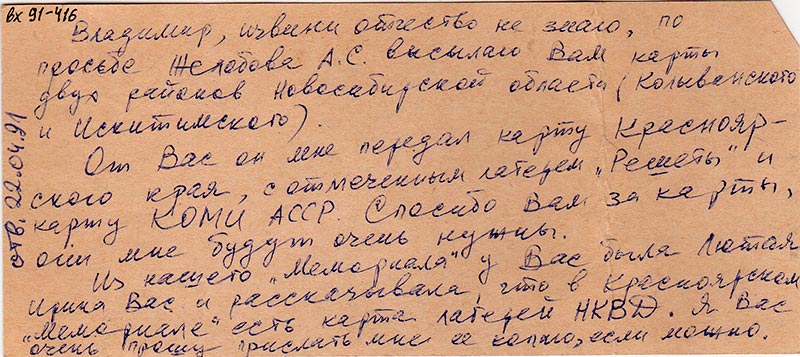 вх 91-416
Владимир, извини отчество не знаю, по
просьбе Желобова А.С. высылаю Вам карты
двух районов Новосибирской области (Колыванского
и Искитимского).
От Вас он мне передал карту Краснояр-
ского края, с отмеченным лагерем „Решеты" и
карту КОМИ АССР. Спасибо Вам за карты,
они мне будут очень нужны.
Из нашего „Мемориала" у Вас была Лютая
Ирина Вас. и рассказывала, что в Красноярском
„Мемориале" есть карта лагерей НКВД. Я Вас
очень прошу прислать мне ее копию, если можно.
отв. 22.04.91